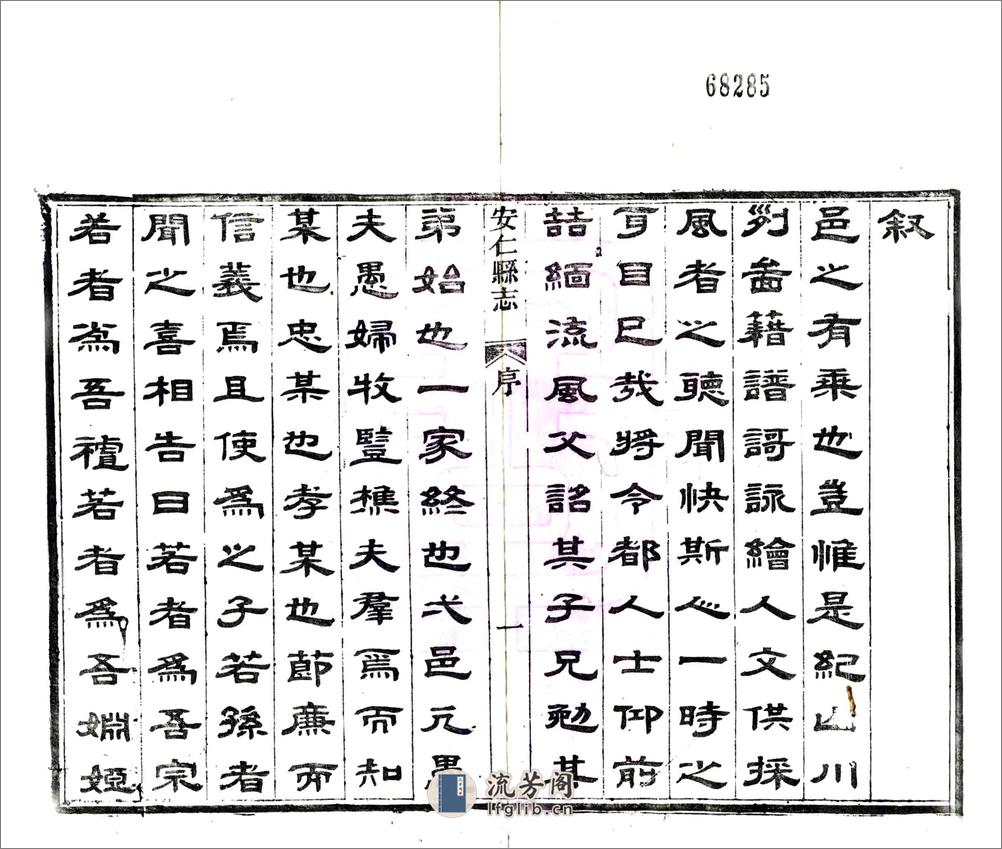 68285
叙
邑之有乘也豈惟是紀山川
列啚籍譜謌詠繪人文供採
風者之聽聞快斯心一時之
耳目已哉將令都人士仰前
喆緬流風父詔其子兄勉其
安仁縣志 序 一
弟始也一家終也弌邑凡愚
夫愚婦牧豎樵夫羣焉而知
某也忠某也孝某也節廉而
信義焉且使爲之子若孫者
聞之喜相告曰若者爲吾宗
若者爲吾若者爲吾婣婭
流芳阁
lfglib.cn